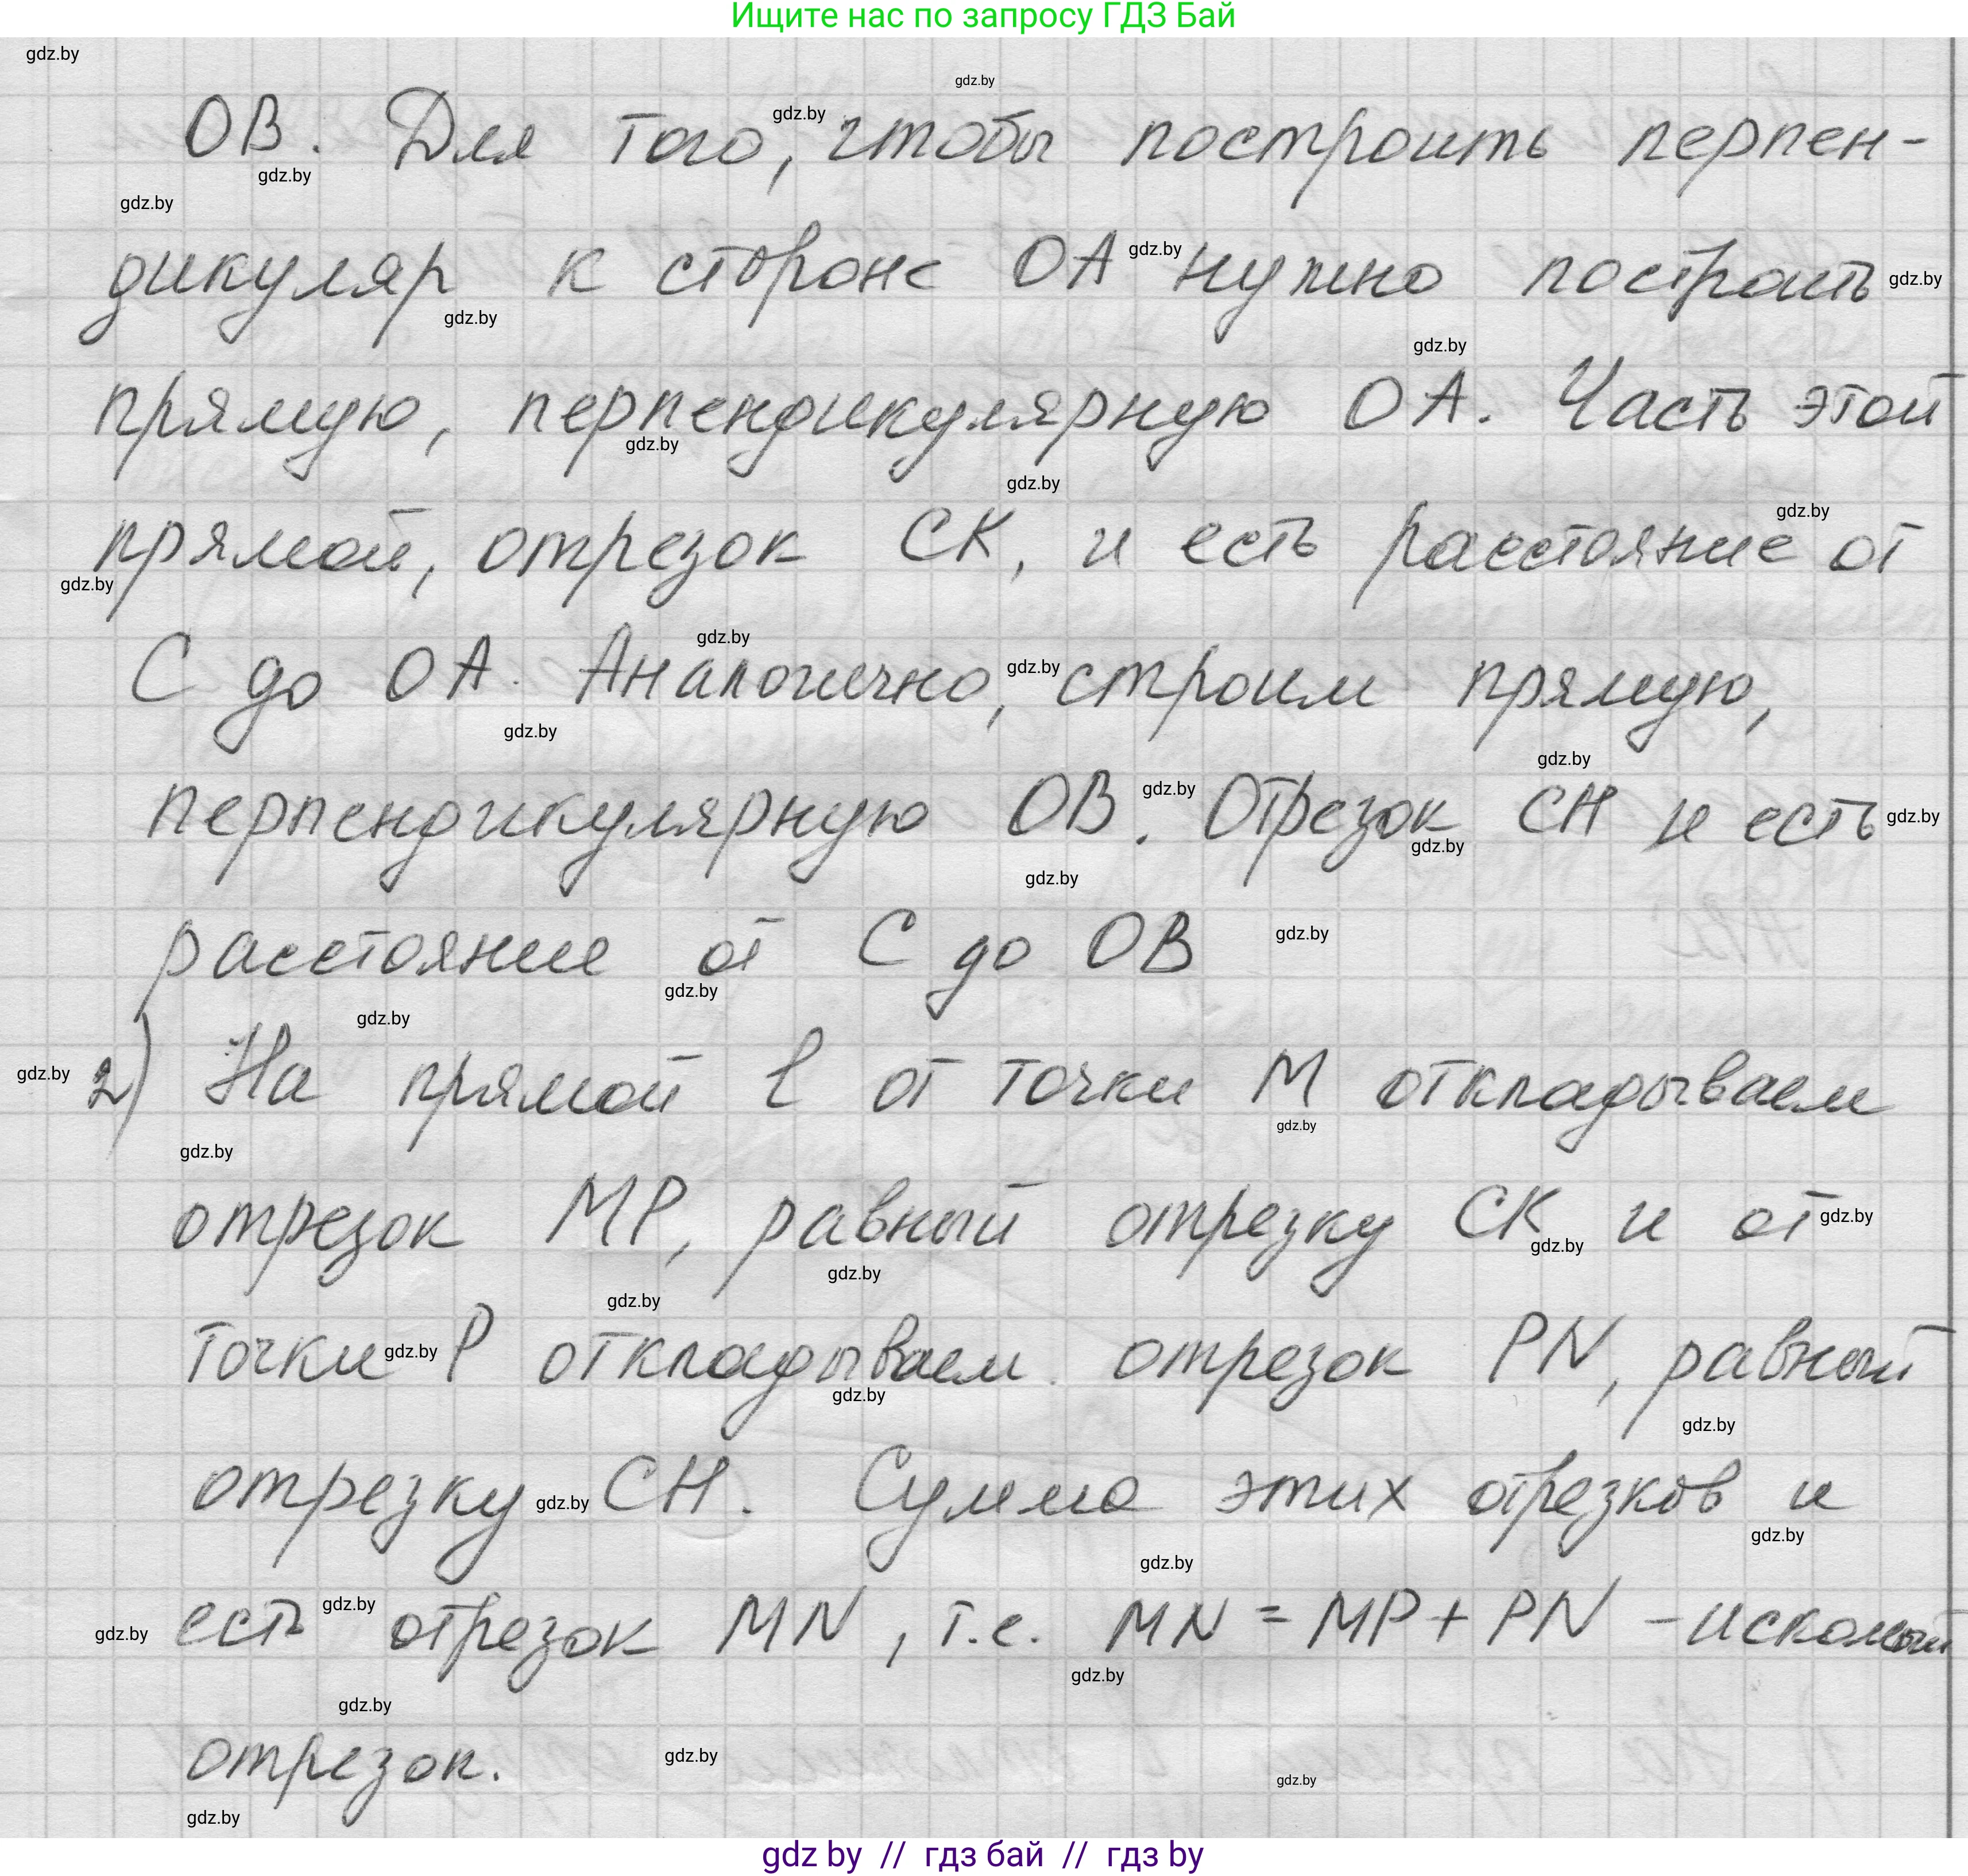 Ищите нас по запросу ГДЗ Бай
ОВ. Для того, чтобы построить перпен-
дикуляр к стороне ОА нужно построить
прямую, перпендикулярную ОА. Часть этой
прямой, отрезок СК, и есть расстояние от
С до ОА. Аналогично, строим прямую,
перпендикулярную ОВ. Отрезок СН и есть
расстояние от С до ОВ
2) На прямой l от точки М откладываем
отрезок МР, равный отрезку СК и от
точки Р откладываем отрезок PN, равный
отрезку СН. Сумма этих отрезков и
есть отрезок MN, т.е. MN = MP + PN - искомый
отрезок.
gdz by // гдз бай // гдз by